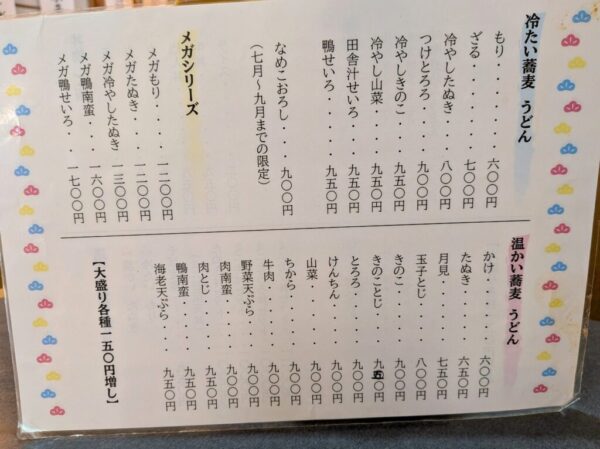 冷たい蕎麦 うどん
もり・・・・・・六〇〇円
ざる・・・・・・七〇〇円
冷やしたぬき・・八〇〇円
つけとろろ・・・九〇〇円
冷やしきのこ・・九五〇円
冷やし山菜・・・九五〇円
田舎汁せいろ・・九五〇円
鴨せいろ・・・・九五〇円
なめこおろし・・・九〇〇円
(七月〜九月までの限定)
メガシリーズ
メガもり・・・・一二〇〇円
メガたぬき・・・一二〇〇円
メガ冷やしたぬき 一三〇〇円
メガ鴨南蛮・・・一六〇〇円
メガ鴨せいろ・・一七〇〇円
温かい蕎麦 うどん
かけ・・・・・・六〇〇円
たぬき・・・・・六五〇円
月見・・・・・・七五〇円
玉子とじ・・・・八〇〇円
きのこ・・・・・九〇〇円
きのことじ・・・九五〇円
とろろ・・・・・九〇〇円
けんちん・・・・九〇〇円
山菜・・・・・・九〇〇円
ちから・・・・・九〇〇円
牛肉・・・・・・九〇〇円
野菜天ぷら・・・九〇〇円
肉南蛮・・・・・九〇〇円
肉とじ・・・・・九五〇円
鴨南蛮・・・・・九〇〇円
海老天ぷら・・・九五〇円
【大盛り各種一五〇円増し】